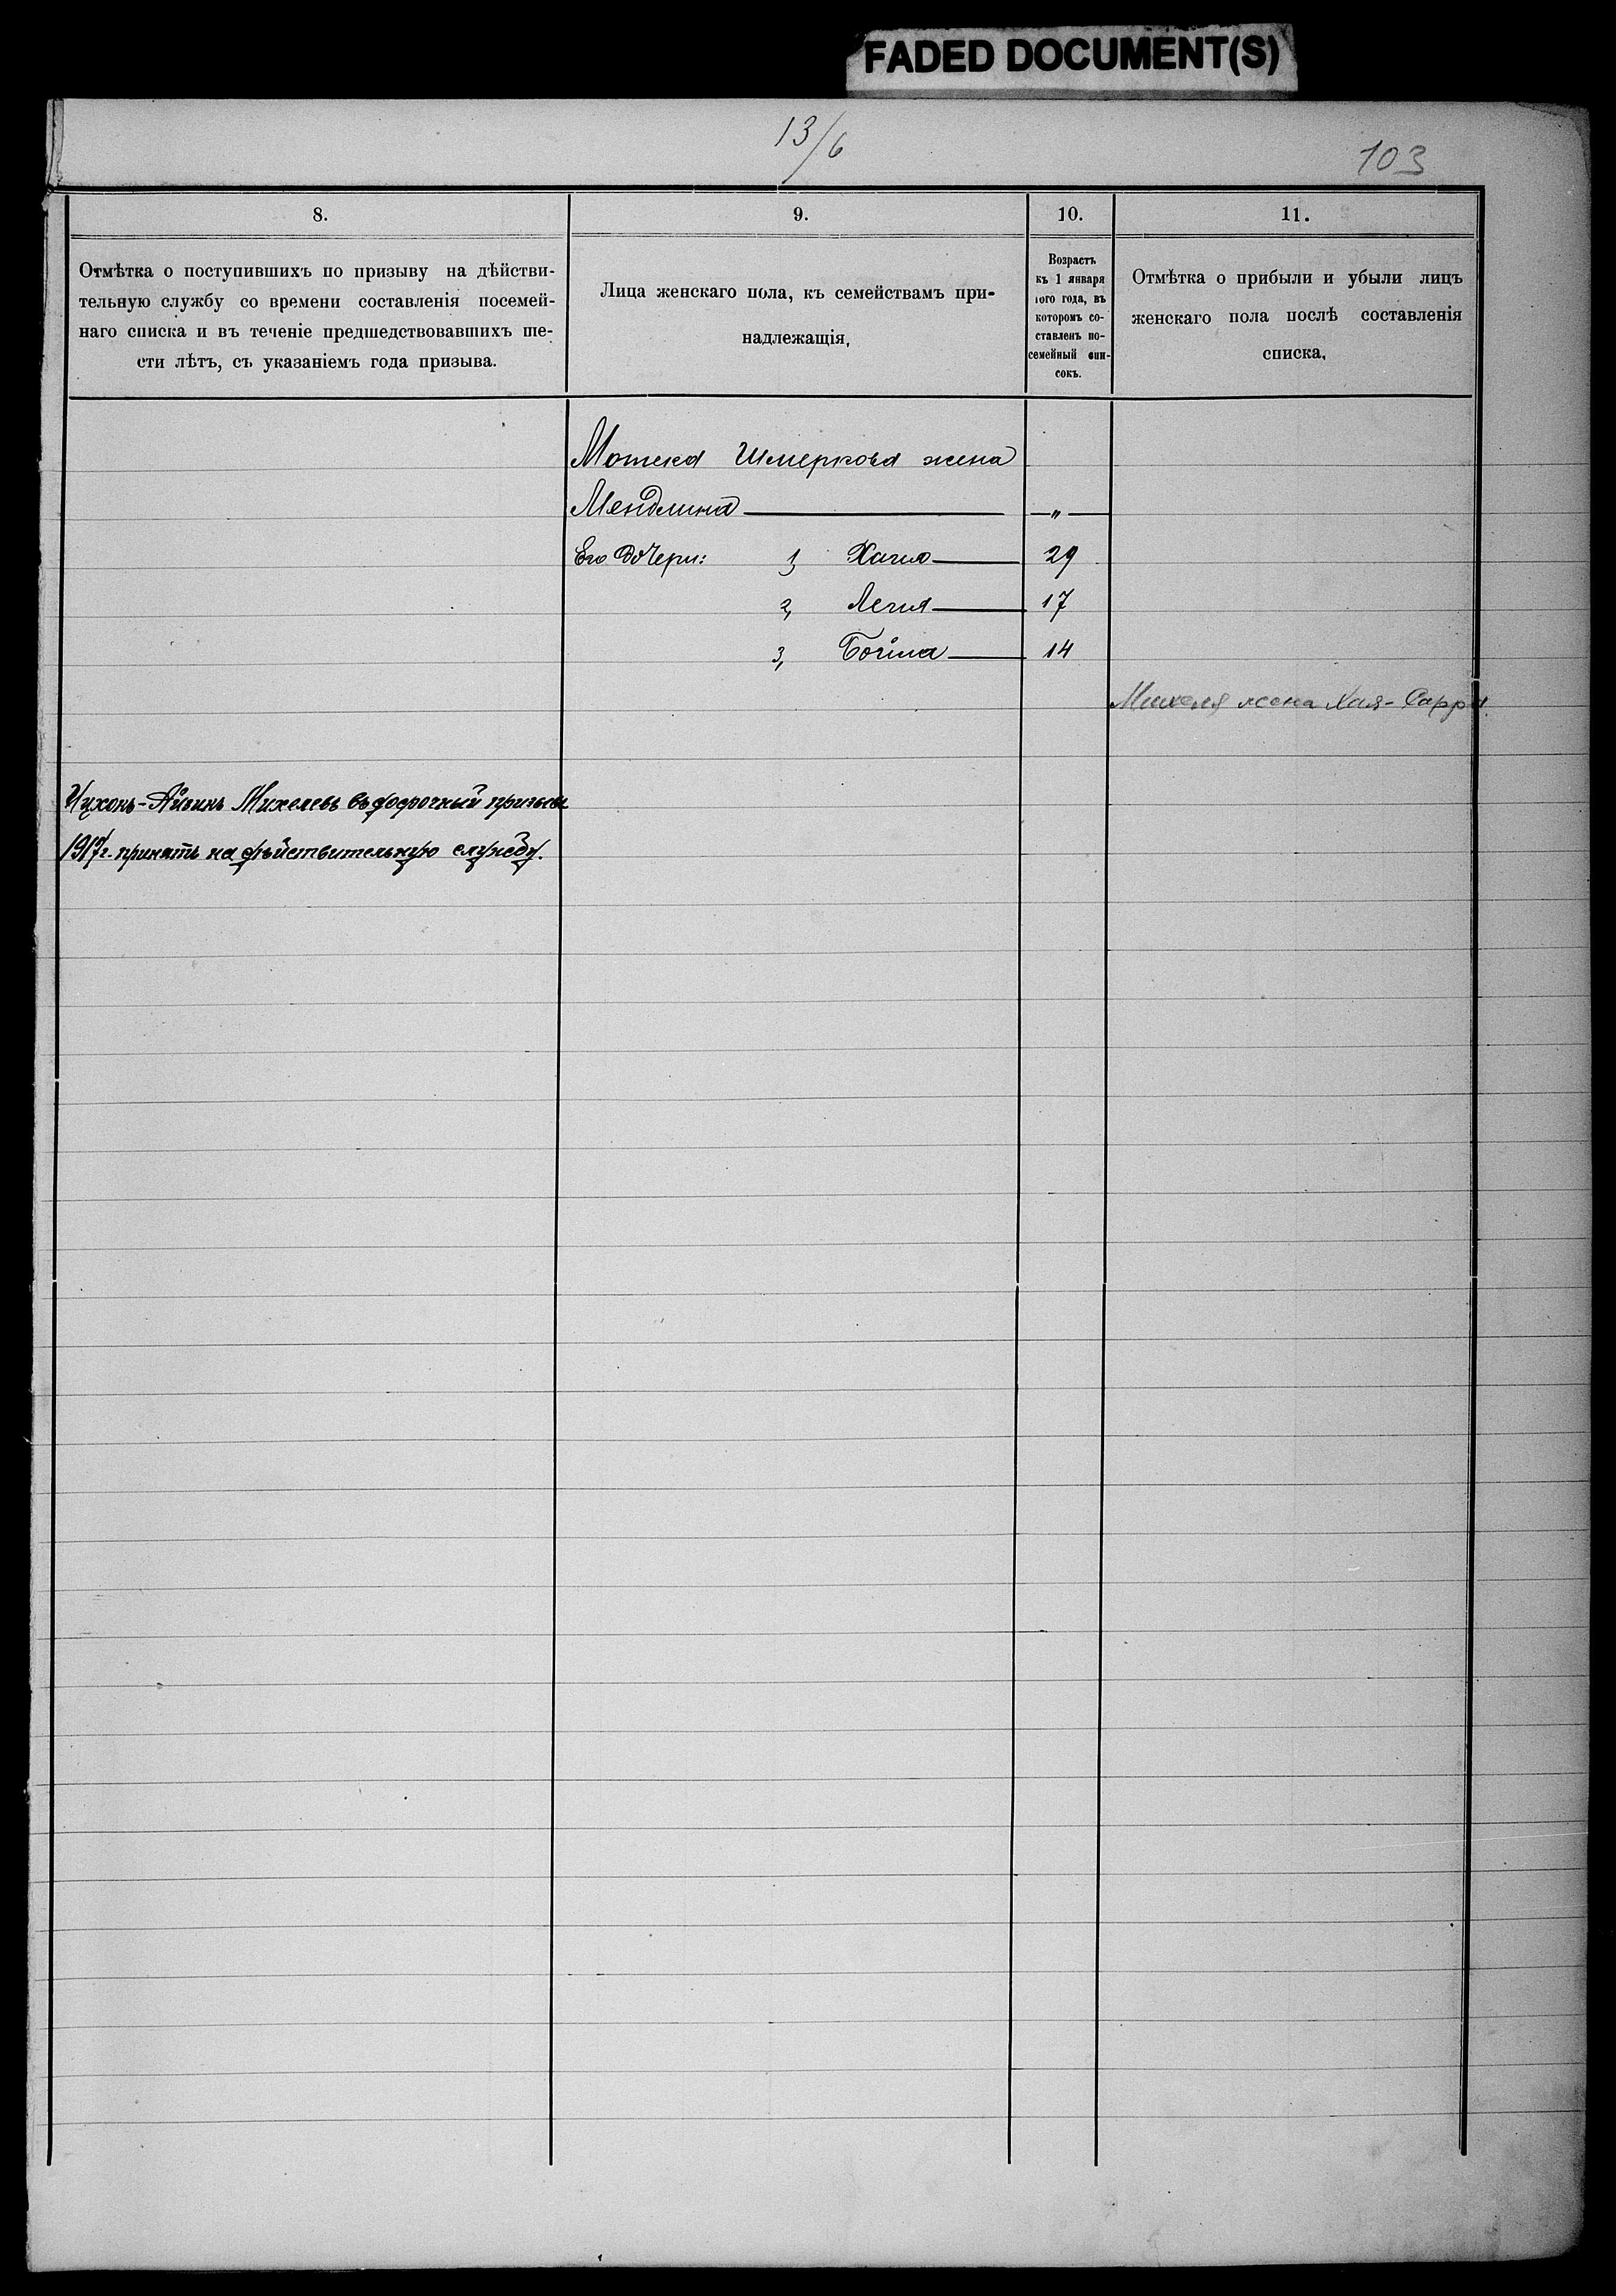 FADED DOCUMENT(S)
13/6
103
8.
9.
10.
11.
Отмѣтка о поступившихъ по призыву на дѣйстви-
тельную службу со времени составленія посемей-
наго списка и въ теченіе предшедствовавшихъ ше-
сти лѣтъ, съ указаніемъ года призыва.
Лица женскаго пола, къ семействамъ при-
надлежащія,
Возрастъ
къ 1 января
того года, въ
которомъ со-
ставленъ по-
семейный спи-
сокъ.
Отмѣтка о прибыли и убыли лицъ
женскаго пола послѣ составленія
списка,
Мотека Шмеркова жена
Мендлина — „ —
Его дочери: 1, Хагля 29
2, Лея 17
3, Бейла 14
Михеля жена Хая-Сарра.
Михелевъ въ досрочный призывъ
1917г. принятъ на дѣйствительную службу.